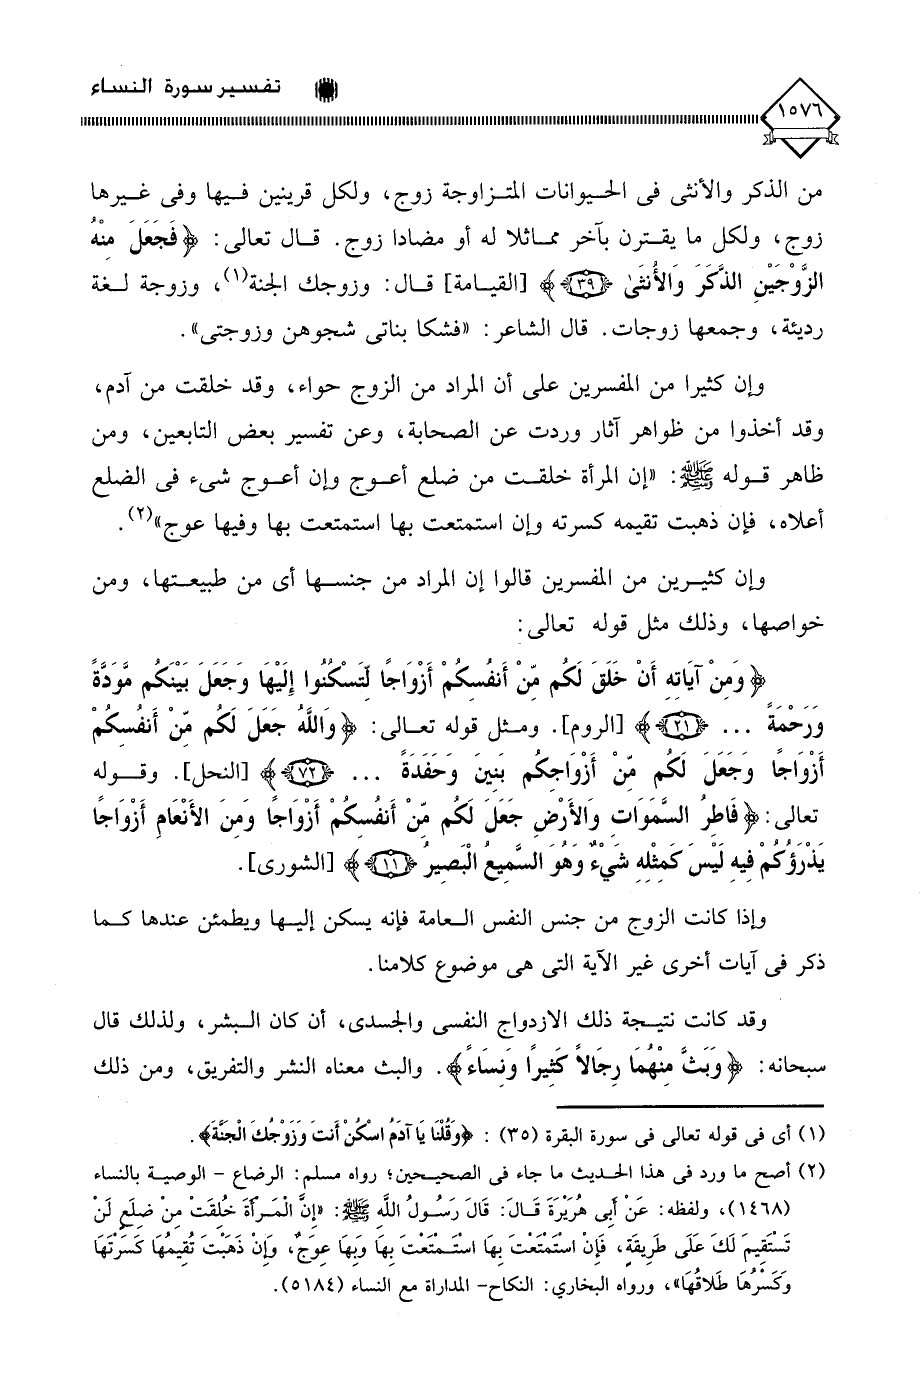 تفسير سورة النساء
١٥٧٦
من الذكر والأنثى فى الحيوانات المتزاوجة زوج، ولكل قرينين فيها وفى غيرها
زوج، ولكل ما يقترن بآخر مماثلا له أو مضادا زوج. قال تعالى: ﴿فَجَعَلَ مِنْهُ
الزَّوْجَيْنِ الذَّكَرَ وَالأُنثَىٰ ﴿٣٩﴾﴾ [القيامة] قال: وزوجك الجنة(١)، وزوجة لغة
رديئة، وجمعها زوجات. قال الشاعر: «فشكا بناتى شجوهن وزوجتى».
وإن كثيرا من المفسرين على أن المراد من الزوج حواء، وقد خلقت من آدم،
وقد أخذوا من ظواهر آثار وردت عن الصحابة، وعن تفسير بعض التابعين، ومن
ظاهر قوله ﷺ: «إن المرأة خلقت من ضلع أعوج وإن أعوج شىء فى الضلع
أعلاه، فإن ذهبت تقيمه كسرته وإن استمتعت بها استمتعت بها وفيها عوج»(٢).
وإن كثيرين من المفسرين قالوا إن المراد من جنسها أى من طبيعتها، ومن
خواصها، وذلك مثل قوله تعالى:
﴿وَمِنْ آيَاتِهِ أَنْ خَلَقَ لَكُم مِّنْ أَنفُسِكُمْ أَزْوَاجًا لِّتَسْكُنُوا إِلَيْهَا وَجَعَلَ بَيْنَكُم مَّوَدَّةً
وَرَحْمَةً ... ﴿٢١﴾﴾ [الروم]. ومثل قوله تعالى: ﴿وَاللَّهُ جَعَلَ لَكُم مِّنْ أَنفُسِكُمْ
أَزْوَاجًا وَجَعَلَ لَكُم مِّنْ أَزْوَاجِكُم بَنِينَ وَحَفَدَةً ... ﴿٧٢﴾﴾ [النحل]. وقوله
تعالى: ﴿فَاطِرُ السَّمَوَاتِ وَالأَرْضِ جَعَلَ لَكُم مِّنْ أَنفُسِكُمْ أَزْوَاجًا وَمِنَ الأَنْعَامِ أَزْوَاجًا
يَذْرَؤُكُمْ فِيهِ لَيْسَ كَمِثْلِهِ شَيْءٌ وَهُوَ السَّمِيعُ الْبَصِيرُ ﴿١١﴾﴾ [الشورى].
وإذا كانت الزوج من جنس النفس العامة فإنه يسكن إليها ويطمئن عندها كما
ذكر فى آيات أخرى غير الآية التى هى موضوع كلامنا.
وقد كانت نتيجة ذلك الازدواج النفسى والجسدى، أن كان البشر، ولذلك قال
سبحانه: ﴿وَبَثَّ مِنْهُمَا رِجَالاً كَثِيرًا وَنِسَاءً﴾. والبث معناه النشر والتفريق، ومن ذلك
(١) أى فى قوله تعالى فى سورة البقرة (٣٥) : ﴿وَقُلْنَا يَا آدَمُ اسْكُنْ أَنتَ وَزَوْجُكَ الْجَنَّةَ﴾.
(٢) أصح ما ورد فى هذا الحديث ما جاء فى الصحيحين؛ رواه مسلم: الرضاع - الوصية بالنساء
(١٤٦٨)، ولفظه: عَنْ أَبِي هُرَيْرَةَ قَالَ: قَالَ رَسُولُ اللَّهِ ﷺ: «إِنَّ الْمَرْأَةَ خُلِقَتْ مِنْ ضِلَعٍ لَنْ
تَسْتَقِيمَ لَكَ عَلَى طَرِيقَةٍ، فَإِنْ اسْتَمْتَعْتَ بِهَا اسْتَمْتَعْتَ بِهَا وَبِهَا عِوَجٌ، وَإِنْ ذَهَبْتَ تُقِيمُهَا كَسَرْتَهَا
وَكَسْرُهَا طَلَاقُهَا»، ورواه البخاري: النكاح- المداراة مع النساء (٥١٨٤).